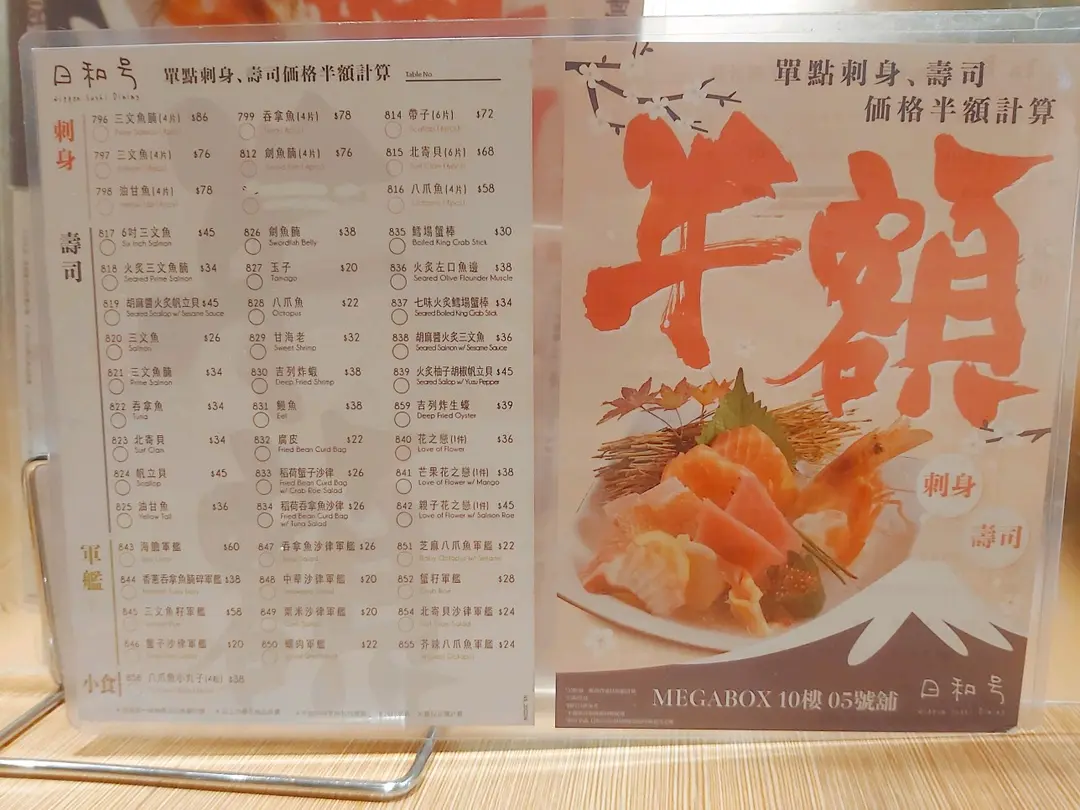 日和号
單點刺身、壽司価格半額計算
Table No.
刺身
796 三文魚腩(4片) $86
797 三文魚(4片) $76
798 油甘魚(4片) $78
799 吞拿魚(4片) $78
812 劍魚腩(4片) $76
814 帶子(6片) $72
815 北寄貝(6片) $68
816 八爪魚(4片) $58
壽司
817 6吋三文魚 $45
Six Inch Salmon
818 火炙三文魚腩 $34
Seared Prime Salmon
819 胡麻醬火炙帆立貝 $45
Seared Scallop w/ Sesame Sauce
820 三文魚 $26
Salmon
821 三文魚腩 $34
Prime Salmon
822 吞拿魚 $34
Tuna
823 北寄貝 $34
Surf Clan
824 帆立貝 $45
Scallop
825 油甘魚 $36
Yellow Tail
826 劍魚腩 $38
Swordfish Belly
827 玉子 $20
Tamago
828 八爪魚 $22
Octopus
829 甘海老 $32
Sweet Shrimp
830 吉列炸蝦 $38
Deep Fried Shrimp
831 鰻魚 $38
Eel
832 腐皮 $22
Fried Bean Curd Bag
833 稻荷蟹子沙律 $26
Fried Bean Curd Bag
w/ Crab Roe Salad
834 稻荷吞拿魚沙律 $26
Fried Bean Curd Bag
w/ Tuna Salad
835 鱈場蟹棒 $30
Boiled King Crab Stick
836 火炙左口魚邊 $38
Seared Olive Flounder Muscle
837 七味火炙鱈場蟹棒 $34
Seared Boiled King Crab Stick
838 胡麻醬火炙三文魚 $36
Seared Salmon w/ Sesame Sauce
839 火炙柚子胡椒帆立貝 $45
Seared Sallop w/ Yuzu Pepper
859 吉列炸生蠔 $39
Deep Fried Oyster
840 花之戀(1件) $36
Love of Flower
841 芒果花之戀(1件) $38
Love of Flower w/ Mango
842 親子花之戀(1件) $45
Love of Flower w/ Salmon Roe
軍艦
843 海膽軍艦 $60
844 香蔥吞拿魚腩碎軍艦 $38
845 三文魚籽軍艦 $58
846 蟹子沙律軍艦 $20
847 吞拿魚沙律軍艦 $26
848 中華沙律軍艦 $20
849 粟米沙律軍艦 $20
850 螺肉軍艦 $22
851 芝麻八爪魚軍艦 $22
852 蟹籽軍艦 $28
854 北寄貝沙律軍艦 $24
855 芥辣八爪魚軍艦 $24
小食
858 八爪魚小丸子(4粒) $38
單點刺身、壽司
価格半額計算
半額
刺身
壽司
MEGABOX 10樓 05號舖
日和号